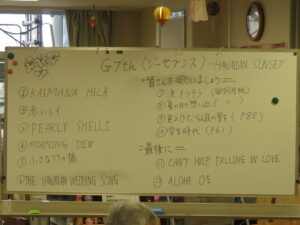 G7th (ジーセブンス) ~HAWAIIAN SUNSET
① KAIMANA HILA
② 赤いレイ
③ PEARLY SHELLS
④ MORNING DEW
⑤ ふたりの橋
⑥ THE HAWAIIAN WEDDING SONG
皆さんで歌いましょう
⑦ 浜辺の歌 (歌詞)
⑧ 夏の日の想い出 (〃)
⑨ 見上げてごらん夜の星を (P88)
⑩ 学生時代 (P61)
最後に
⑪ CAN'T HELP FALLING IN LOVE
⑫ ALOHA OE